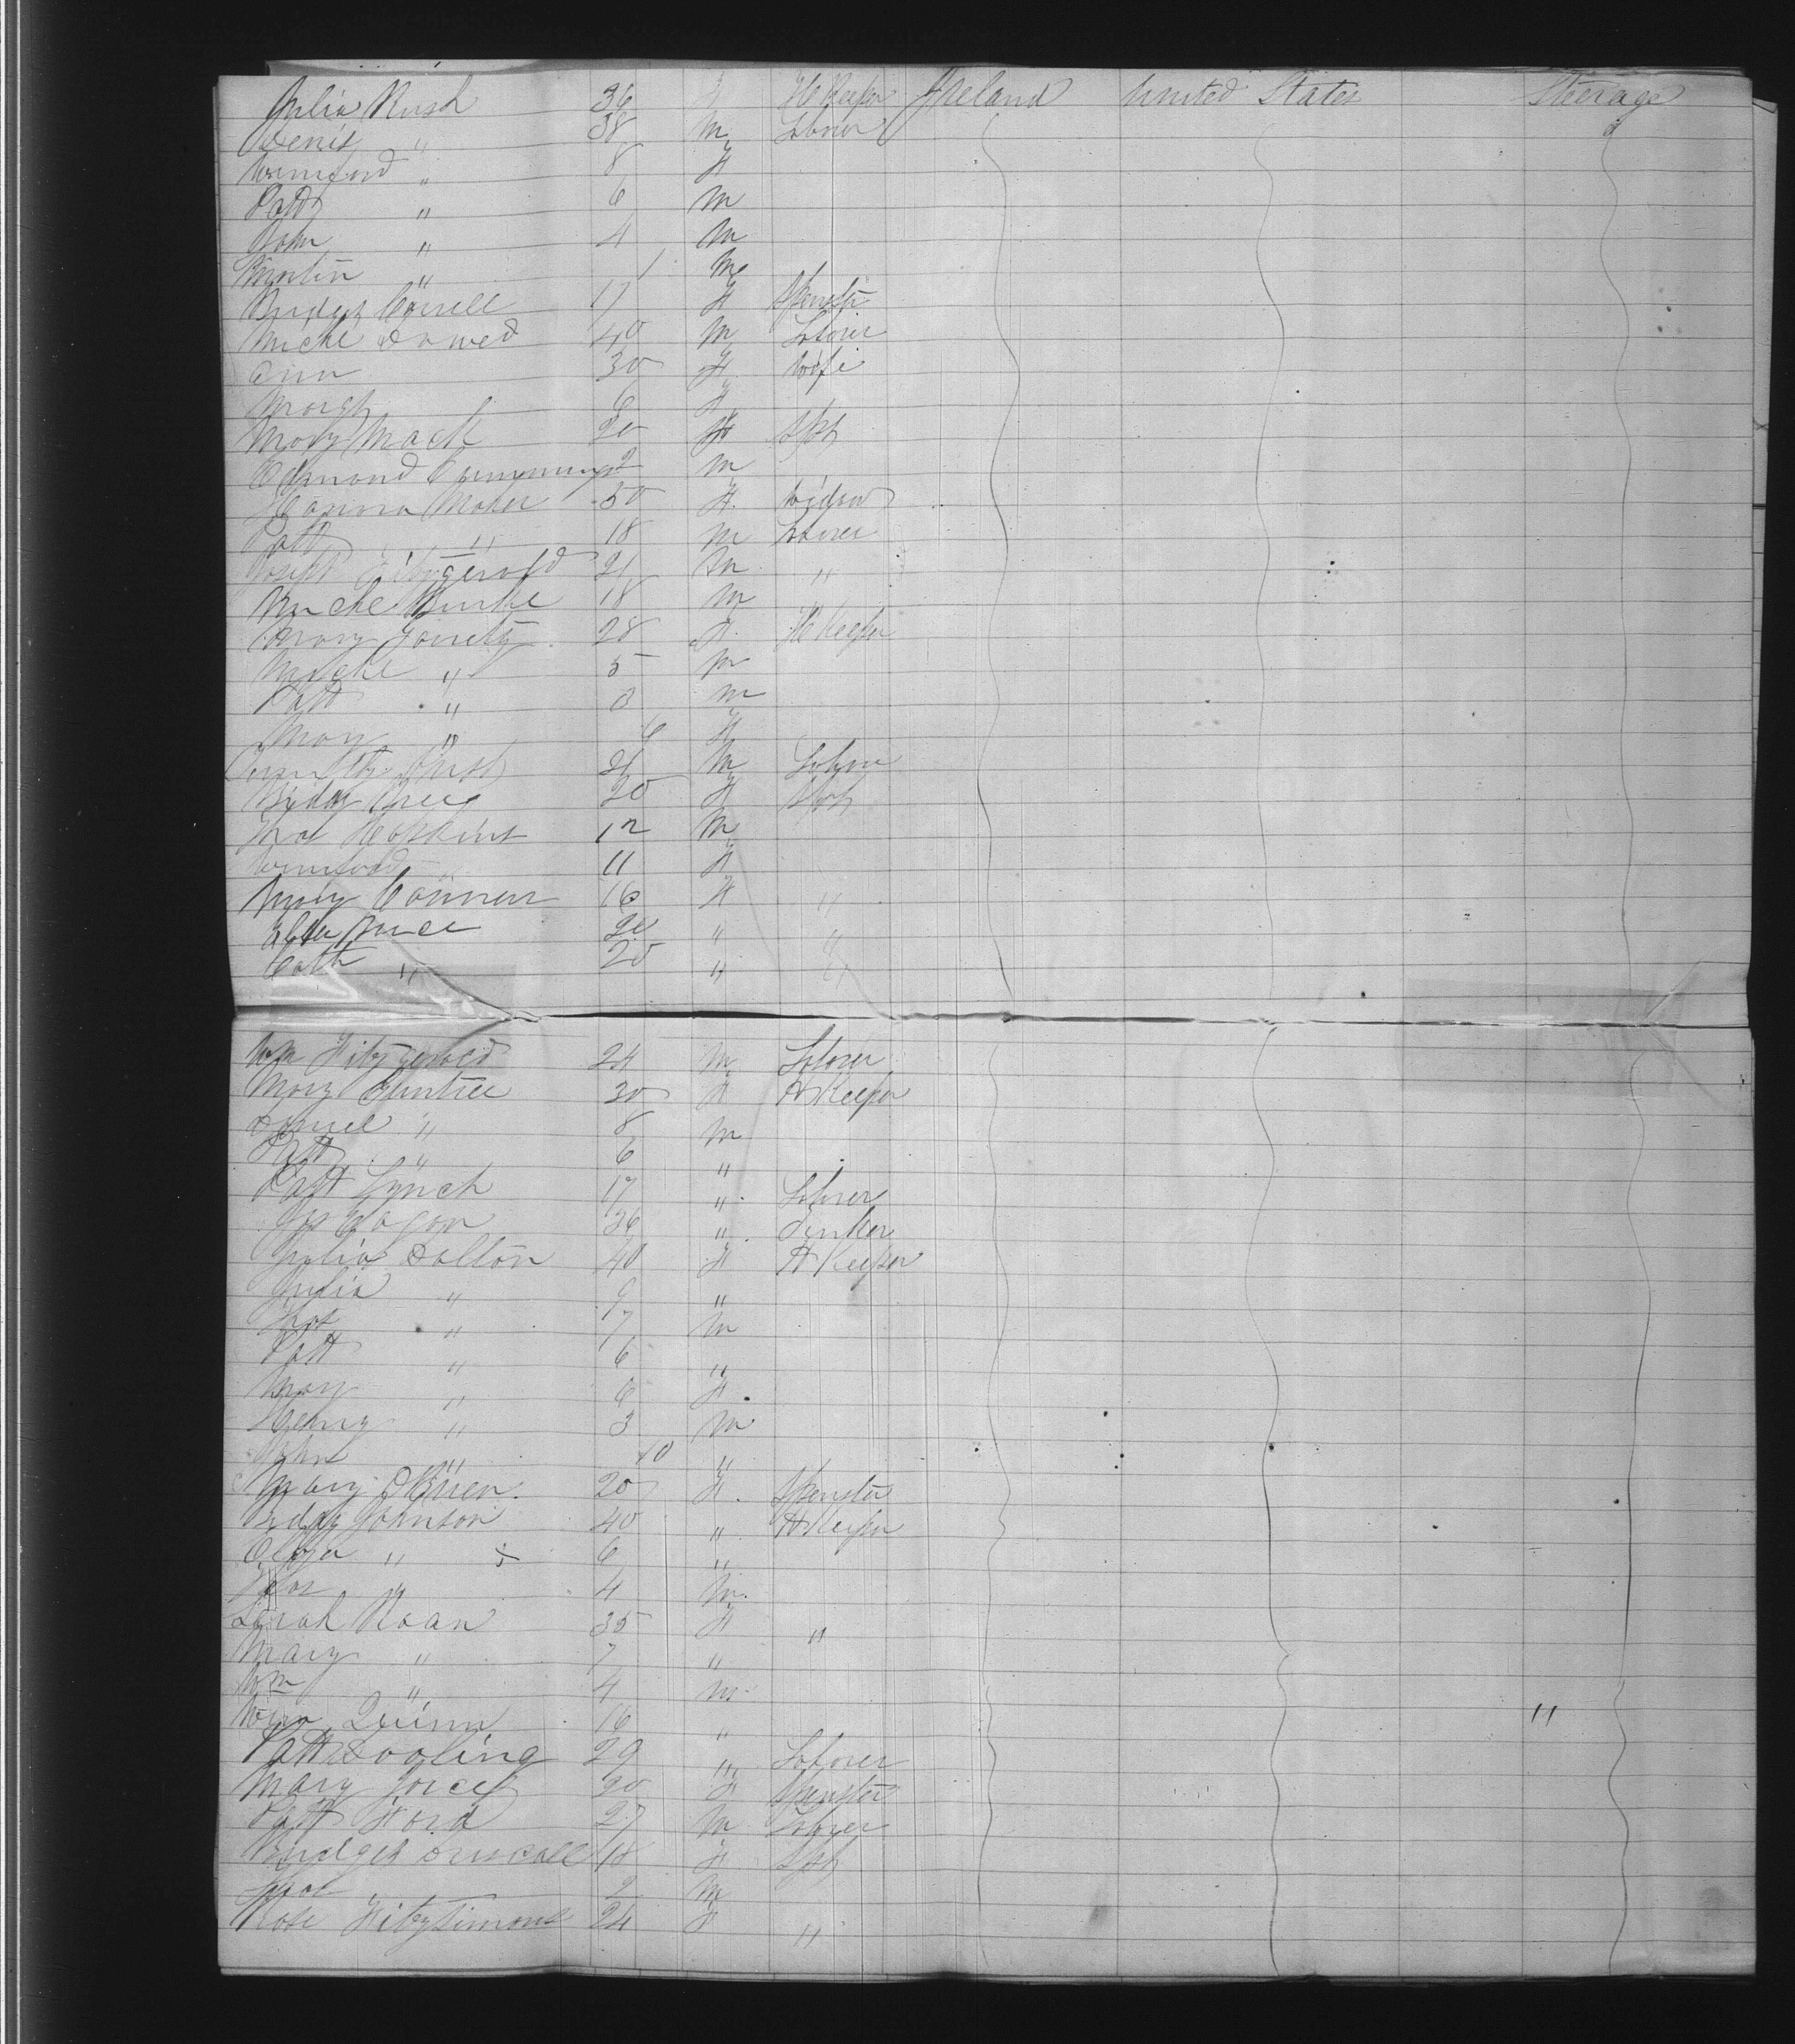 Julia Rush 36 F H Keeper Ireland United States Steerage
Denis " 38 M Laborer
Winifred " 8 F
Patt " 6 M
John " 4 M
Martin " 1 M
Bridget 17 F Spinster
Michl Dowed 40 M Laborer
Ann 30 F Wife
Margt 6 F
Mary Mack 20 F Sptr
Edmond Cummings 2 M
Hanora Maher 50 F Widow
Patt " 18 M Laborer
Joseph Fitzgerald 21 M "
Michl Burke 18 M "
Mary 28 F H Keeper
Michl " 5 M
Patt " 3 M
Mary " 6 F
21 M Laborer
Biddy 20 F Sptr
Thos Hoskins 12 M
Winifred 11 F
Mary Connen 16 F "
20 " "
Cath " 20 " "
Wm Fitzgerald 24 M Laborer
Mary 30 F H Keeper
Daniel " 8 M
Patt " 6 "
Patt Lynch 17 " Laborer
Jas Eagan 26 " Tinker
Julia Dalton 40 F H Keeper
Julia " 9 "
Thos " 7 M
Patt " 6 "
Mary " 6 F
Henry " 3 M
John " 10 "
Mary OBrien 20 F Spinster
Bidgt Johnson 40 " H Keeper
Eliza " 6 "
Thos " 4 M
Sarah Roan 35 F "
Mary " 7 "
Wm " 4 M
Wm Quinn 16 " "
Patt Dooling 29 " Laborer
Mary Joice 20 F Spinster
Patt Ford 27 M Laborer
Bridget Driscall 18 F Sptr
Thos 2 M
Rose Fitzsimons 24 F "